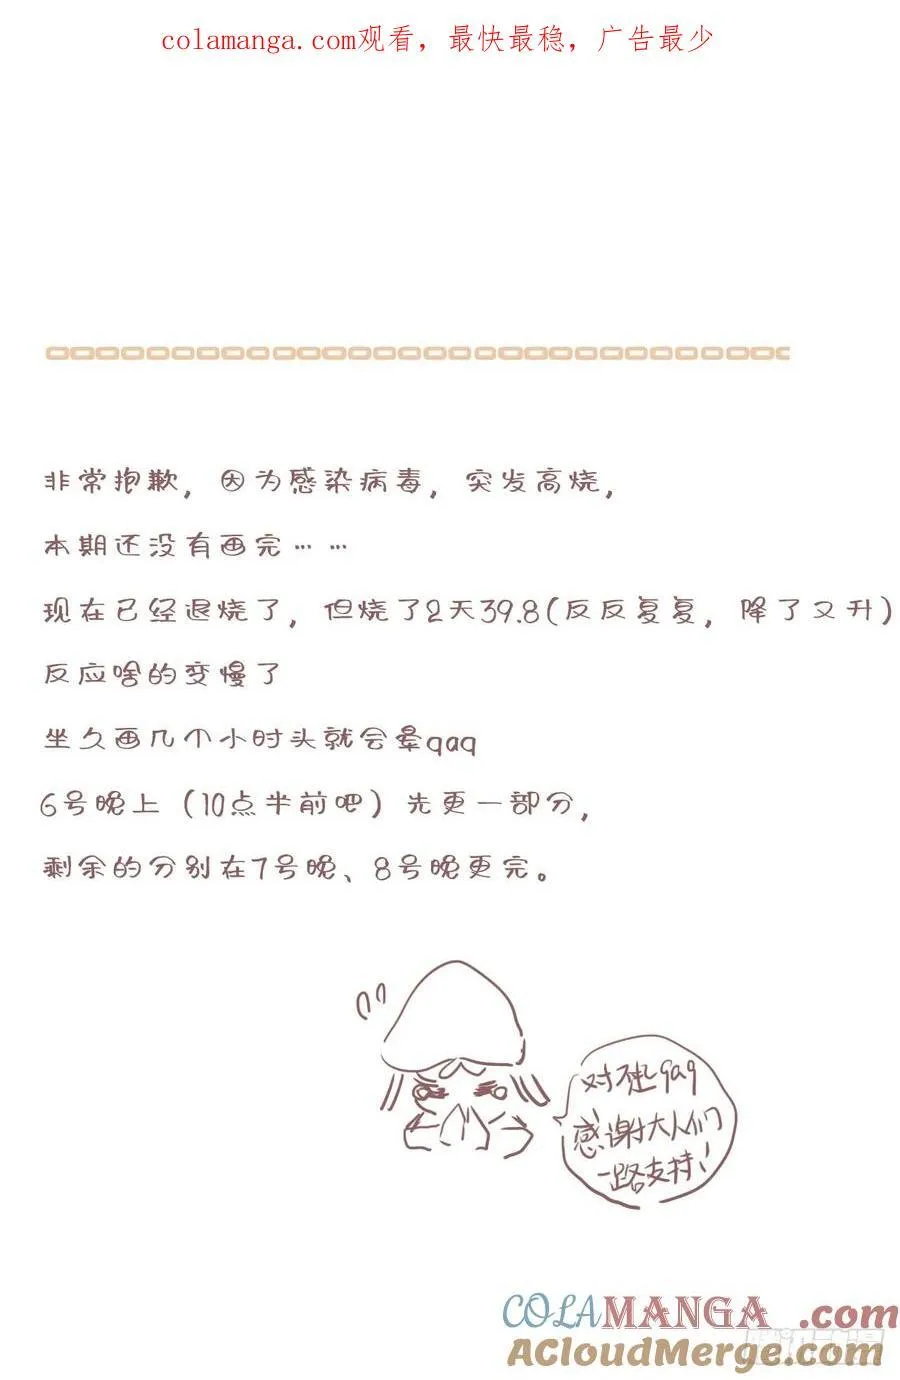 colamanga.com观看，最快最稳，广告最少
非常抱歉，因为感染病毒，突发高烧，
本期还没有画完……
现在已经退烧了，但烧了2天39.8(反反复复，降了又升)
反应啥的变慢了
坐久画几个小时头就会晕qaq
6号晚上（10点半前吧）先更一部分，
剩余的分别在7号晚、8号晚更完。
对不起qaq
感谢大人们
一路支持！
COLAMANGA.com
ACloudMerge.com